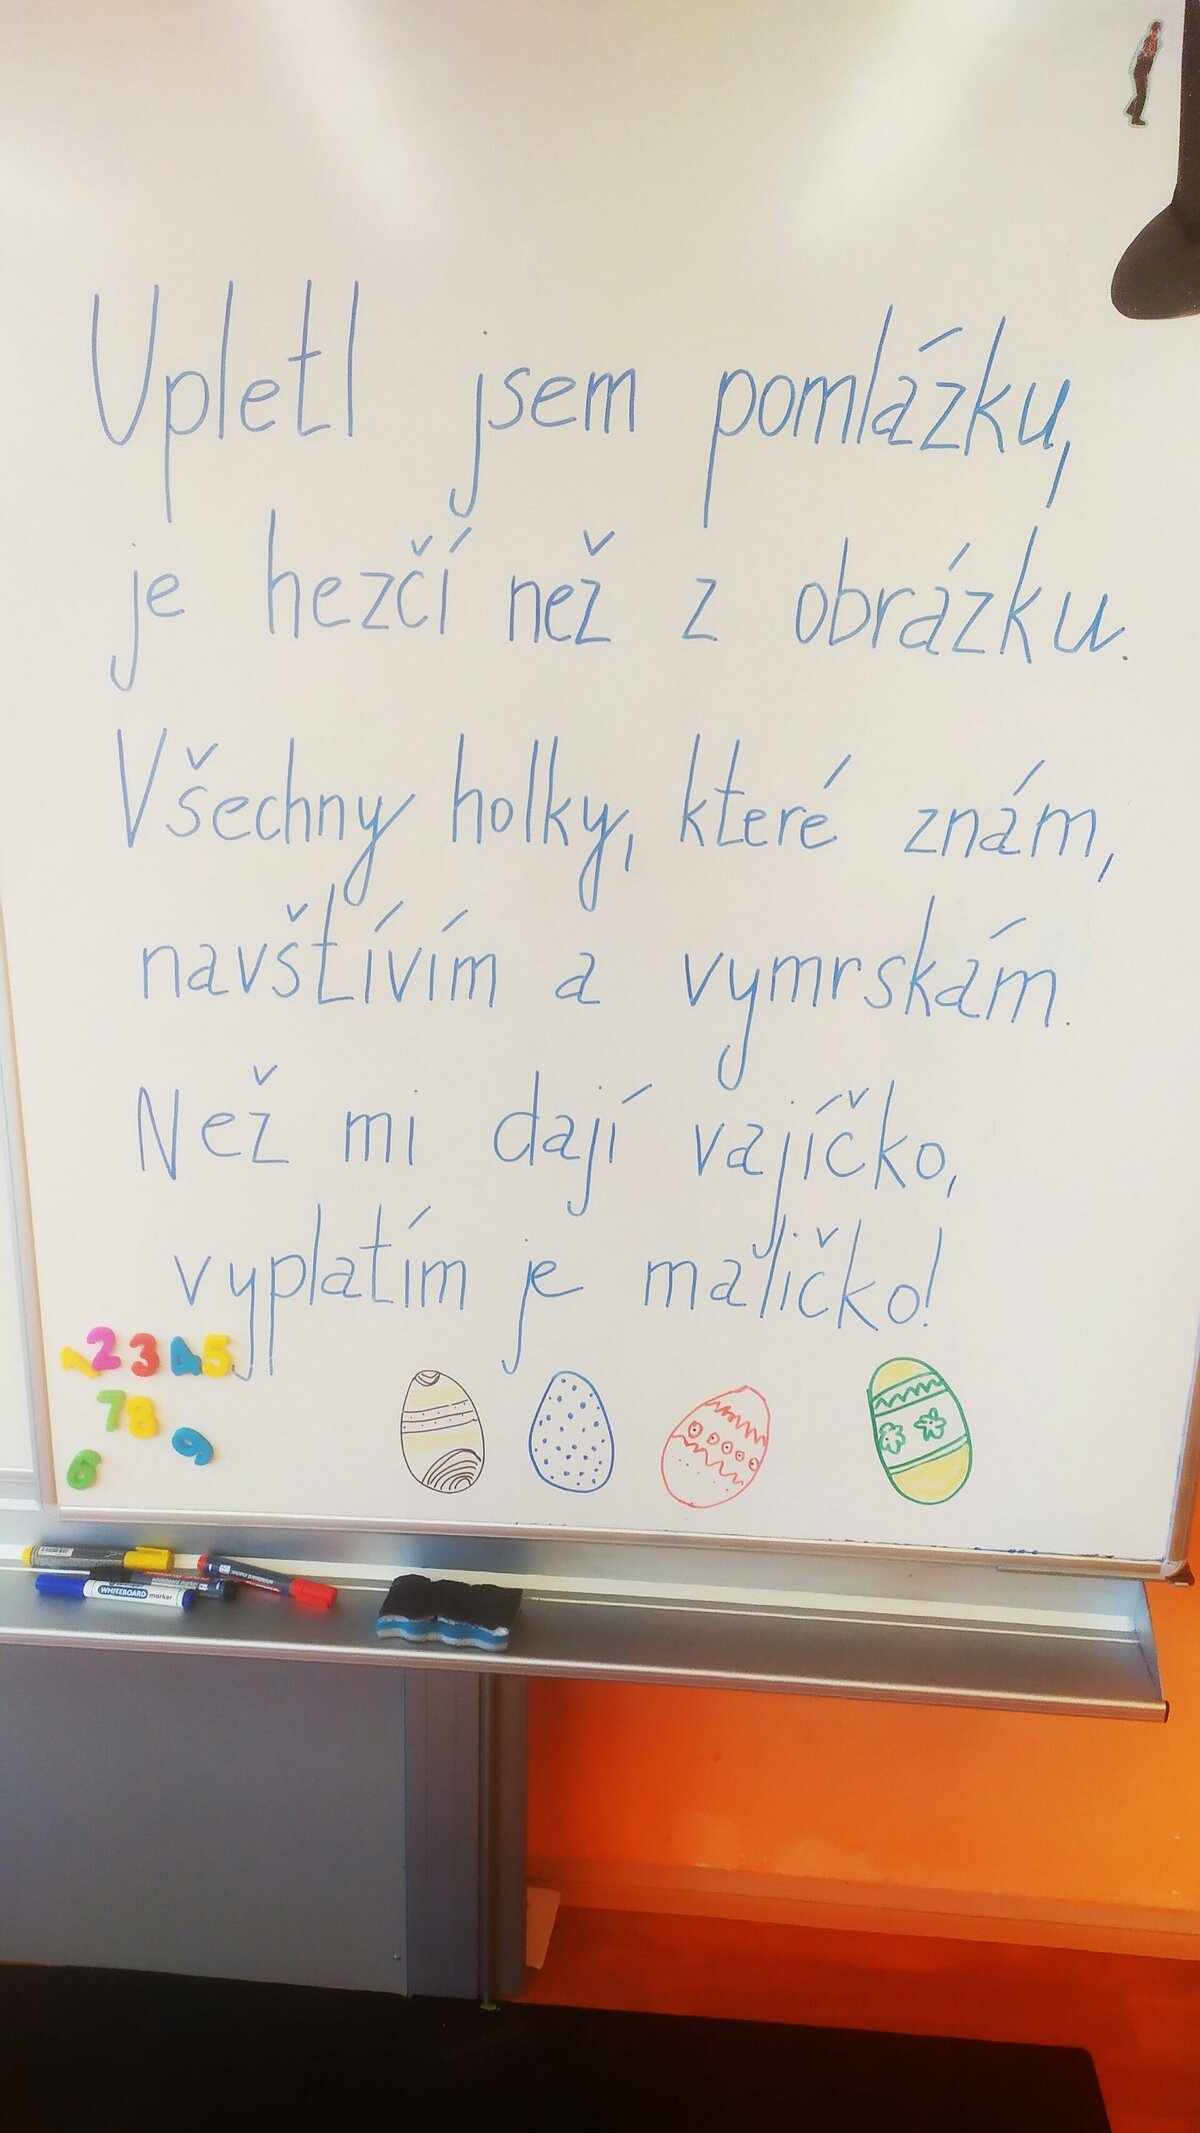 Upletl jsem pomlázku,
je hezčí než z obrázku.
Všechny holky, které znám,
navštívím a vymrskám.
Než mi dají vajíčko,
vyplatím je maličko!
1 2 3 4 5
7 8
9
6
WHITEBOARD marker
whiteboard marker